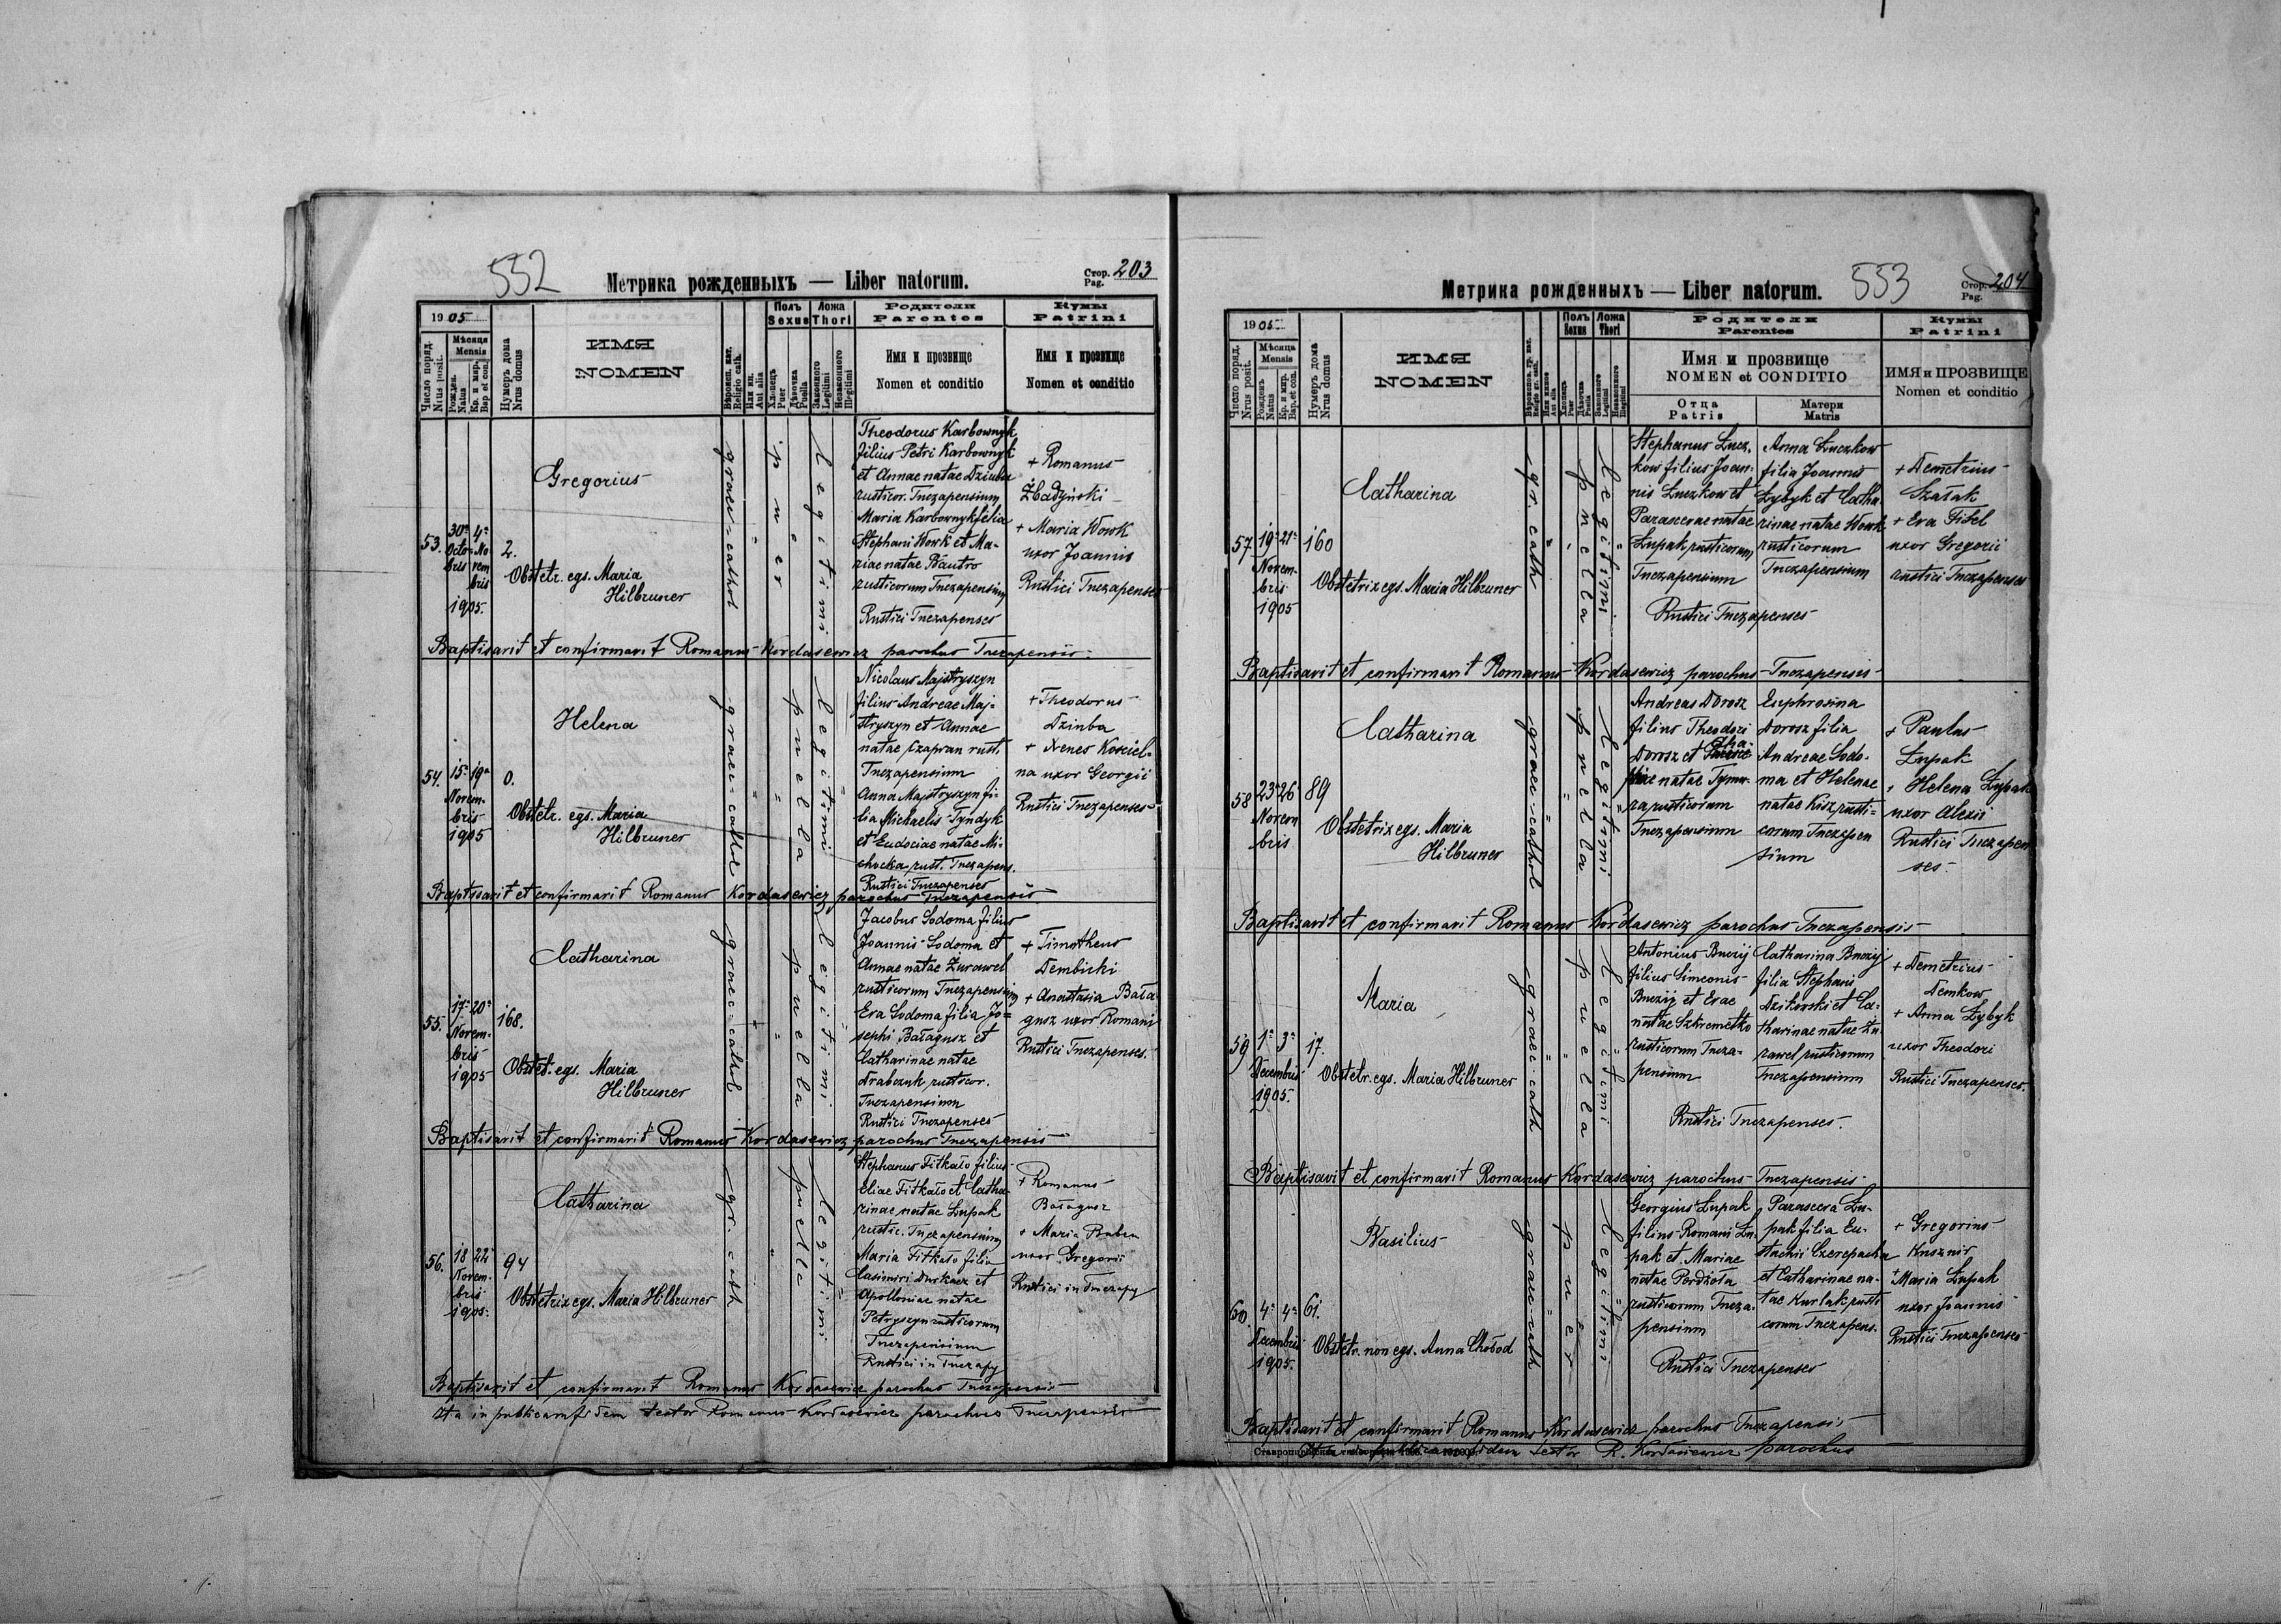 552
Метрика рожденныхъ — Liber natorum.
Стор. 203
Pag.
1905
Число поряд.
Nrus posit.
Мѣсяца
Mensis
Рожден.
Natus
Кр. и мvр.
Bap et con.
Нумеръ дома
Nrus domus
ИМЯ
NOMEN
Вѣроисп. кат.
Religio cath.
Или ин.
Aut alia
Полъ
Sexus
Хлопецъ
Puer
Дѣвочка
Puella
Ложа
Thori
Законного
Legitimi
Незаконного
Illegitimi
Родители
Parentes
Имя и прозвище
Nomen et conditio
Кумы
Patrini
Имя и прозвище
Nomen et conditio
53.
30ª 4ª
Octo- No
bris vem
bris
1905.
2.
Gregorius
Obstetr. egs. Maria
Hilbruner
graec-cathol
puer
legitimi
Theodorus Karbownyk
filius Petri Karbownyk
et Annae natae Dziuba
rusticor. Tuczapensium
Maria Karbownyk filia
Stephani Wowk et Ma-
riae natae Bautro
rusticorum Tuczapensium
Rustici Tuczapenses
+ Romanus
Żbadyński
+ Maria Wowk
uxor Joannis
Rustici Tuczapenses
Baptisavit et confirmavit Romanus Kordasewicz parochus Tuczapensis
54.
15ª 19ª
Novem-
bris
1905
0.
Helena
Obstetr. egs. Maria
Hilbruner
graec-cathl
puella
legitimi
Nicolaus Majstryszyn
filius Andreae Maj-
stryszyn et Annae
natae Czapran rust.
Tuczapensium
Anna Majstryszyn fi-
lia Michaelis Tyndyk
et Eudociae natae Mi-
chocka rust. Tuczapens.
Rustici Tuczapenses
+ Theodorus
Dziuba
+ Xenes Kosciel-
na uxor Georgii
Rustici Tuczapenses
Baptisavit et confirmavit Romanus Kordasewicz parochus Tuczapensis
55.
17ª 20ª
Novem-
bris
1905
168.
Catharina
Obstet. egs. Maria
Hilbruner
graec-cathol
puella
legitimi
Jacobus Sodoma filius
Joannis Sodoma et
Annae natae Żurawel
rusticorum Tuczapensium
Eva Sodoma filia Jo-
sephi Bałagusz et
Catharinae natae
Drabczuk rusticor.
Tuczapensium
Rustici Tuczapenses
+ Timotheus
Dembicki
+ Anastasia Bała-
gusz uxor Romani
Rustici Tuczapenses.
Baptisavit et confirmavit Romanus Kordasewicz parochus Tuczapensis
56.
18 22
Novem-
bris
1905.
94
Catharina
Obstetrix egs. Maria Hilbruner
gr. cath
puella
legitimi
Stephanus Fitkało filius
Eliae Fitkało et Catha-
rinae natae Łupak
rustic. Tuczapensium
Maria Fitkało filia
Casimiri Durkacz et
Apolloniae natae
Petryszyn rusticorum
Tuczapensium
Rustici in Tuczapy
+ Romanus
Bałagusz
+ Maria Buben
uxor Gregorii
Rustici in Tuczapy
Baptisavit et confirmavit Romanus Kordasewicz parochus Tuczapensis
Ita in publicam fidem testor Romanus Kordasewicz parochus Tuczapensis
Метрика рожденныхъ — Liber natorum.
553
Стор. 204
Pag.
1905
Число поряд.
Nrus posit.
Мѣсяца
Mensis
Рожденъ
Natus
Кр. и мvр.
Bap. et con.
Нумеръ дома
Nrus domus
ИМЯ
NOMEN
Полъ
Sexus
Хлопецъ
Puer
Дѣвочка
Puella
Ложа
Thori
Законного
Legitimi
Незаконного
Illegitimi
Родители
Parentes
Имя и прозвище
NOMEN et CONDITIO
Отца
Patris
Матери
Matris
Кумы
Patrini
ИМЯ и ПРОЗВИЩЕ
Nomen et conditio
57.
19ª 21ª
Novem-
bris
1905
160
Catharina
Obstetrix egs. Maria Hilbruner
gr. cath
puella
legitimi
Stephanus Łucz-
kow filius Joan-
nis Łuczkow et
Parascevae natae
Łupak rusticorum
Tuczapensium
Anna Łuczkow
filia Joannis
Łybyk et Catha
rinae natae Wowk
rusticorum
Tuczapensium
Rustici Tuczapenses
+ Demetrius
Szałak
+ Eva Fitel
uxor Gregorii
rustici Tuczapenses
Baptisavit et confirmavit Romanus Kordasewicz parochus Tuczapensis
58
23 26
Novem
bris
89
Catharina
Obstetrix egs. Maria
Hilbruner
graec-cathol
puella
legitimi
Andreas Dorosz
filius Theodori
Dorosz et
natae Tymu-
ra rusticorum
Tuczapensium
Euphrosina
Dorosz filia
Andreae Sodo-
ma et Helenae
natae Kisz rusti-
corum Tuczapen
sium
+ Paulus
Łupak
+ Helena Łupak
uxor Alexii
Rustici Tuczapen
ses.
Baptisavit et confirmavit Romanus Kordasewicz parochus Tuczapensis
59
1ª 3ª
Decembris
1905.
17.
Maria
Obstetr. egs. Maria Hilbruner
graec-cath
puella
legitimi
Antonius Buczij
filius Simeonis
Buczij et Evae
natae Szkremetko
rusticorum Tucza-
pensium
Catharina Buczij
filia Stephani
Dzikowski et Ca-
tharinae natae Żu
rawel rusticorum
Tuczapensium
Rustici Tuczapenses.
+ Demetrius
Demkow
+ Anna Łybyk
uxor Theodori
Rustici Tuczapenses.
Baptisavit et confirmavit Romanus Kordasewicz parochus Tuczapensis
60.
4ª 4ª
Decembris
1905.
61.
Basilius
Obstetr. non egs. Anna Chołod
graec-cath
puer
legitimi
Georgius Łupak
filius Romani Łu-
pak et Mariae
natae Perdżoła
rusticorum Tucza-
pensium
Parasceva Łu-
pak filia Eu-
stachii Czerepacha
et Catharinae na-
tae Kurlak rusti
corum Tuczapens.
Rustici Tuczapenses
+ Gregorius
Kusznir
+ Maria Łupak
uxor Joannis
Rustici Tuczapenses
Baptisavit et confirmavit Romanus Kordasewicz parochus Tuczapensis
Ita in publicam fidem testor R. Kordasiewicz parochus